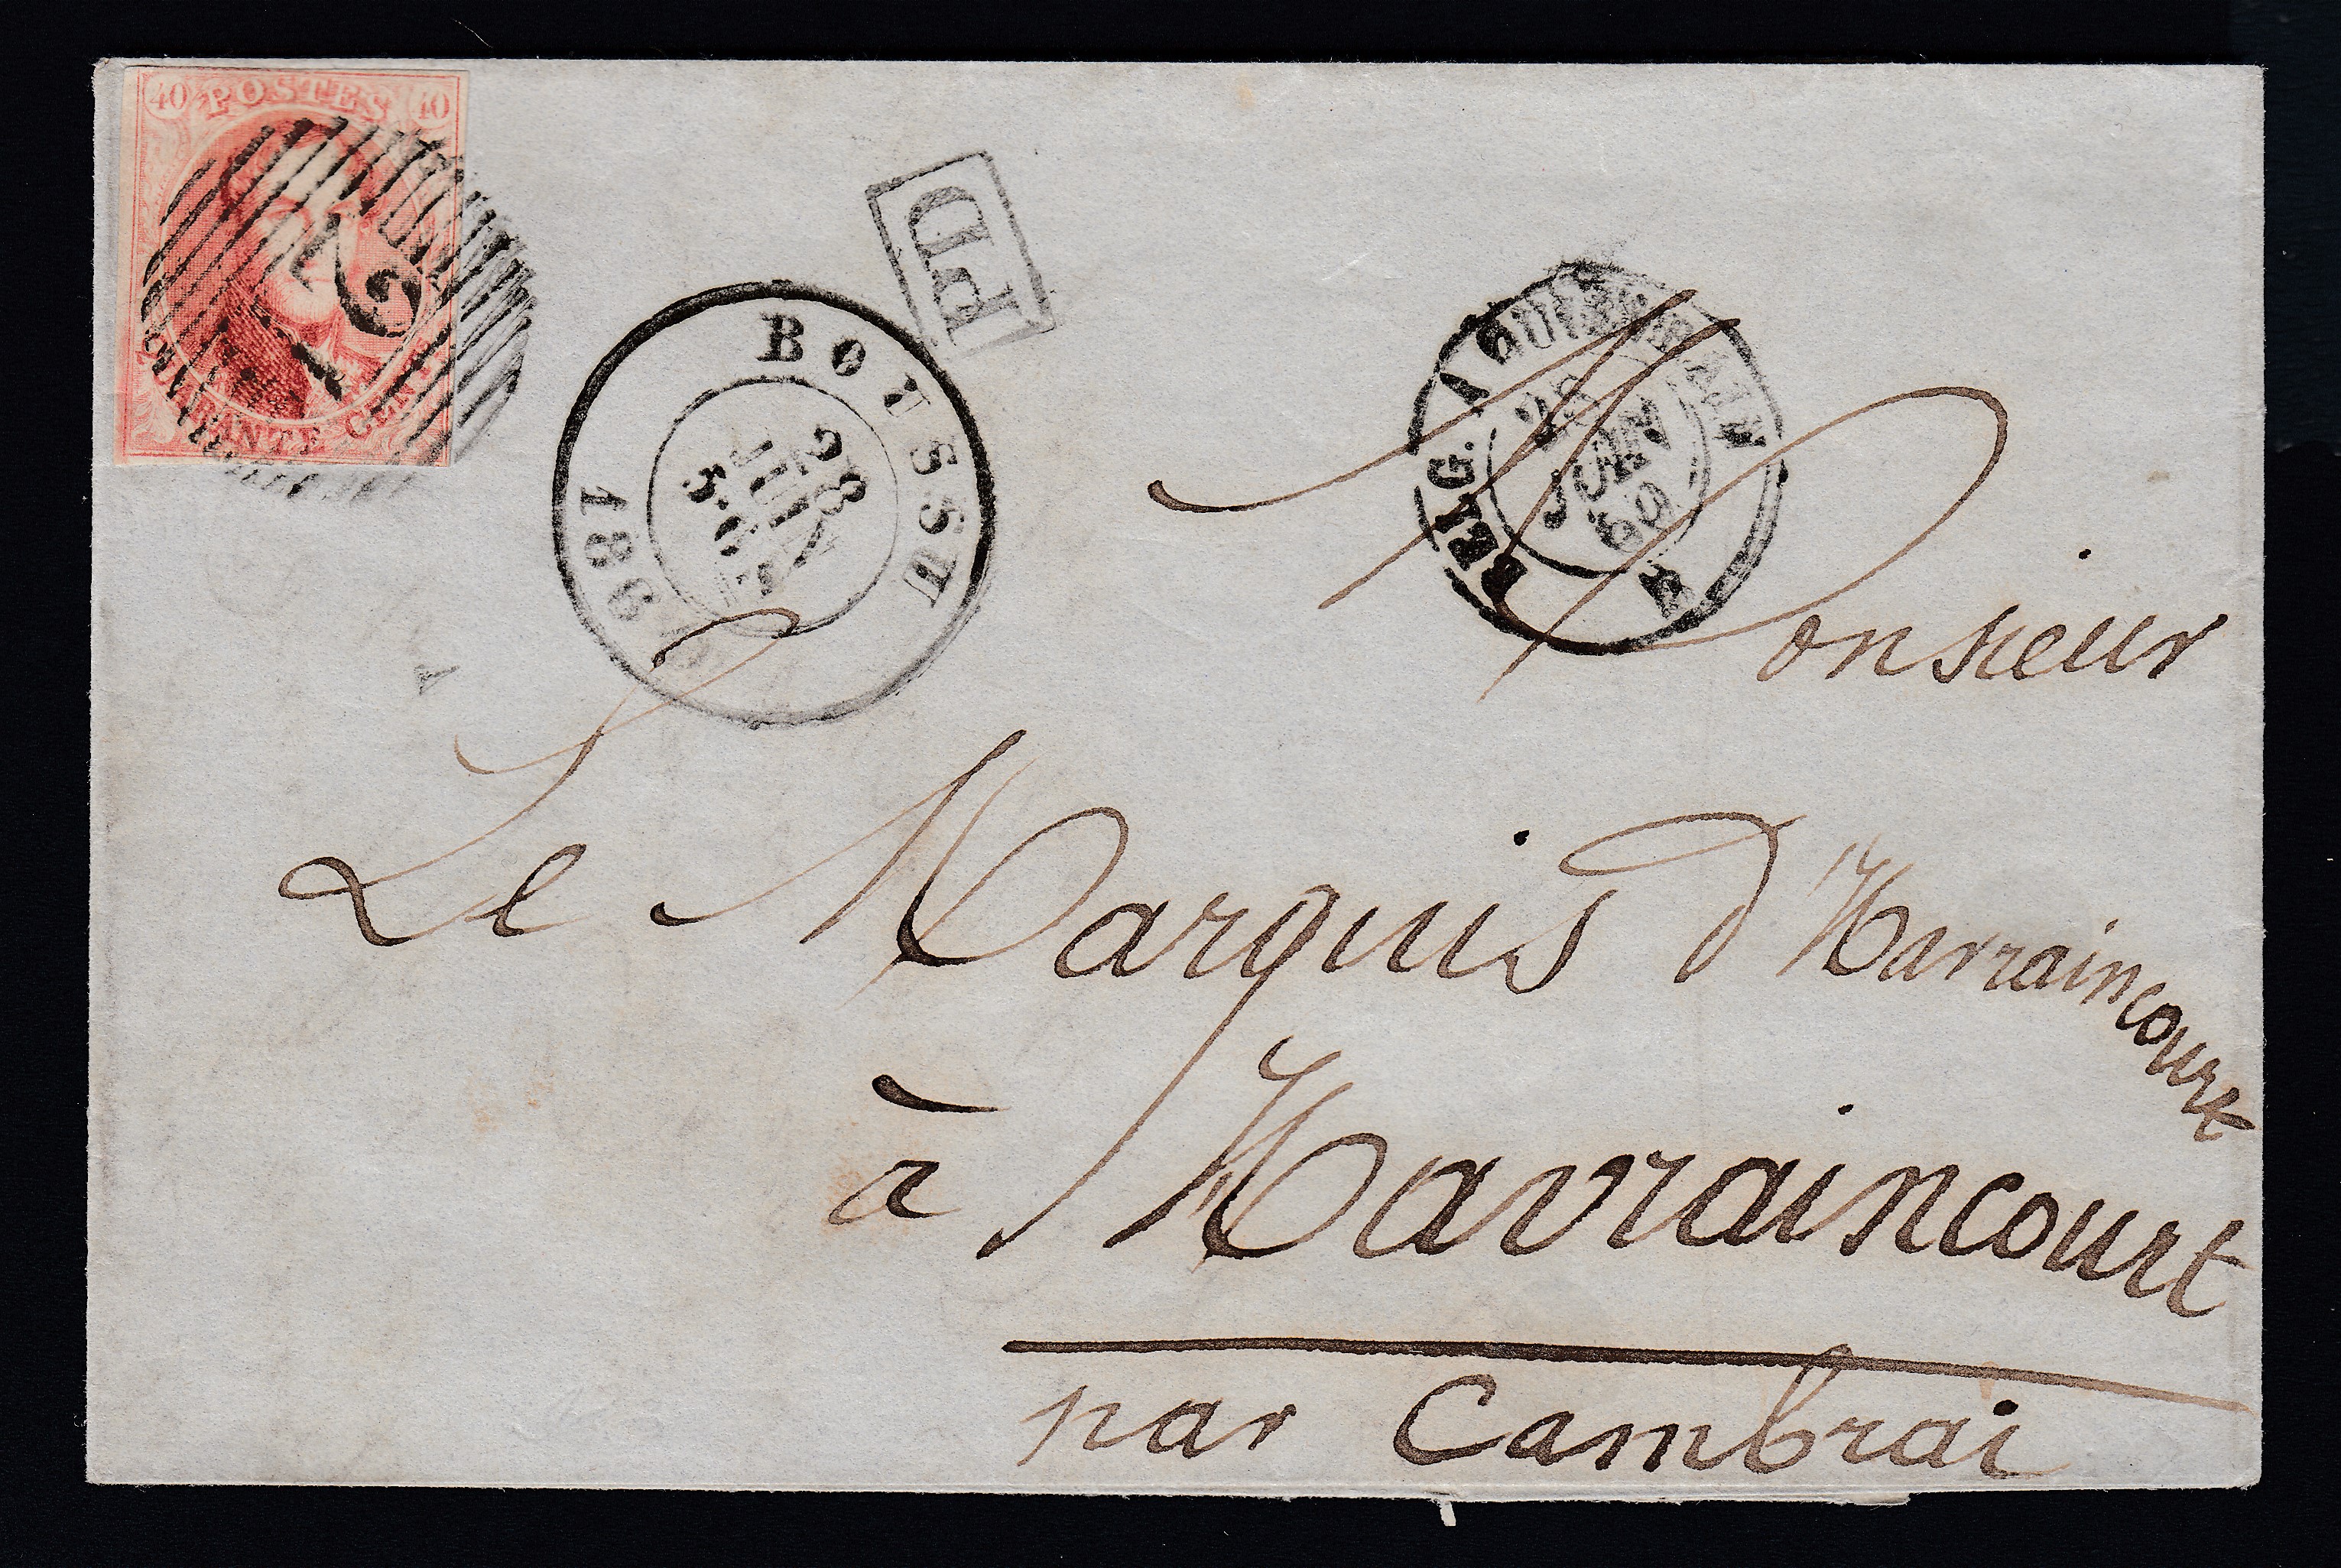 40 POSTES 40
12
QUARANTE CENT
PD
BOUSSU
28
JUIN
186
BELG. A QUIÉVRAIN
28
JUIN
60
Monsieur
Le Marquis d'Havraincourt
à Havraincourt
par Cambrai